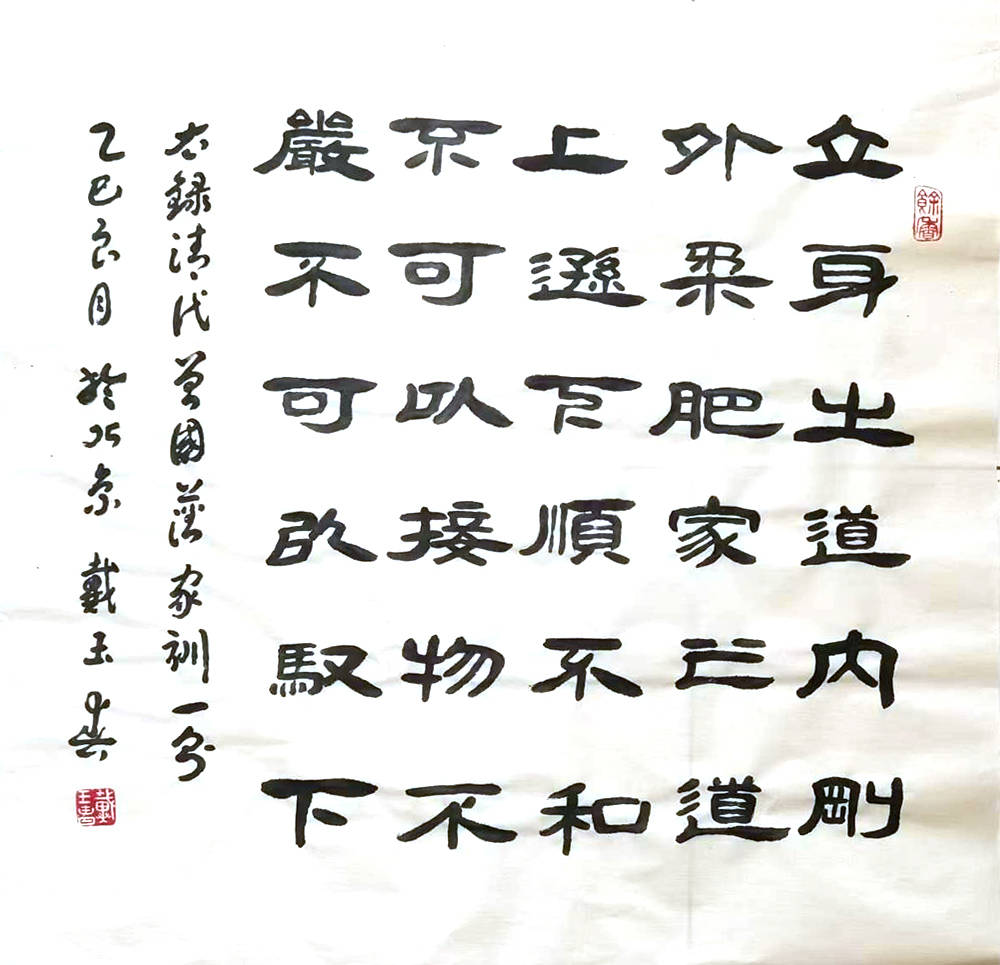 立身之道内剛
外柔肥家之道
上遜下順不和
不可以接物不
嚴不可以馭下
右錄清代曾國藩家訓一
乙巳良月於北京戴玉